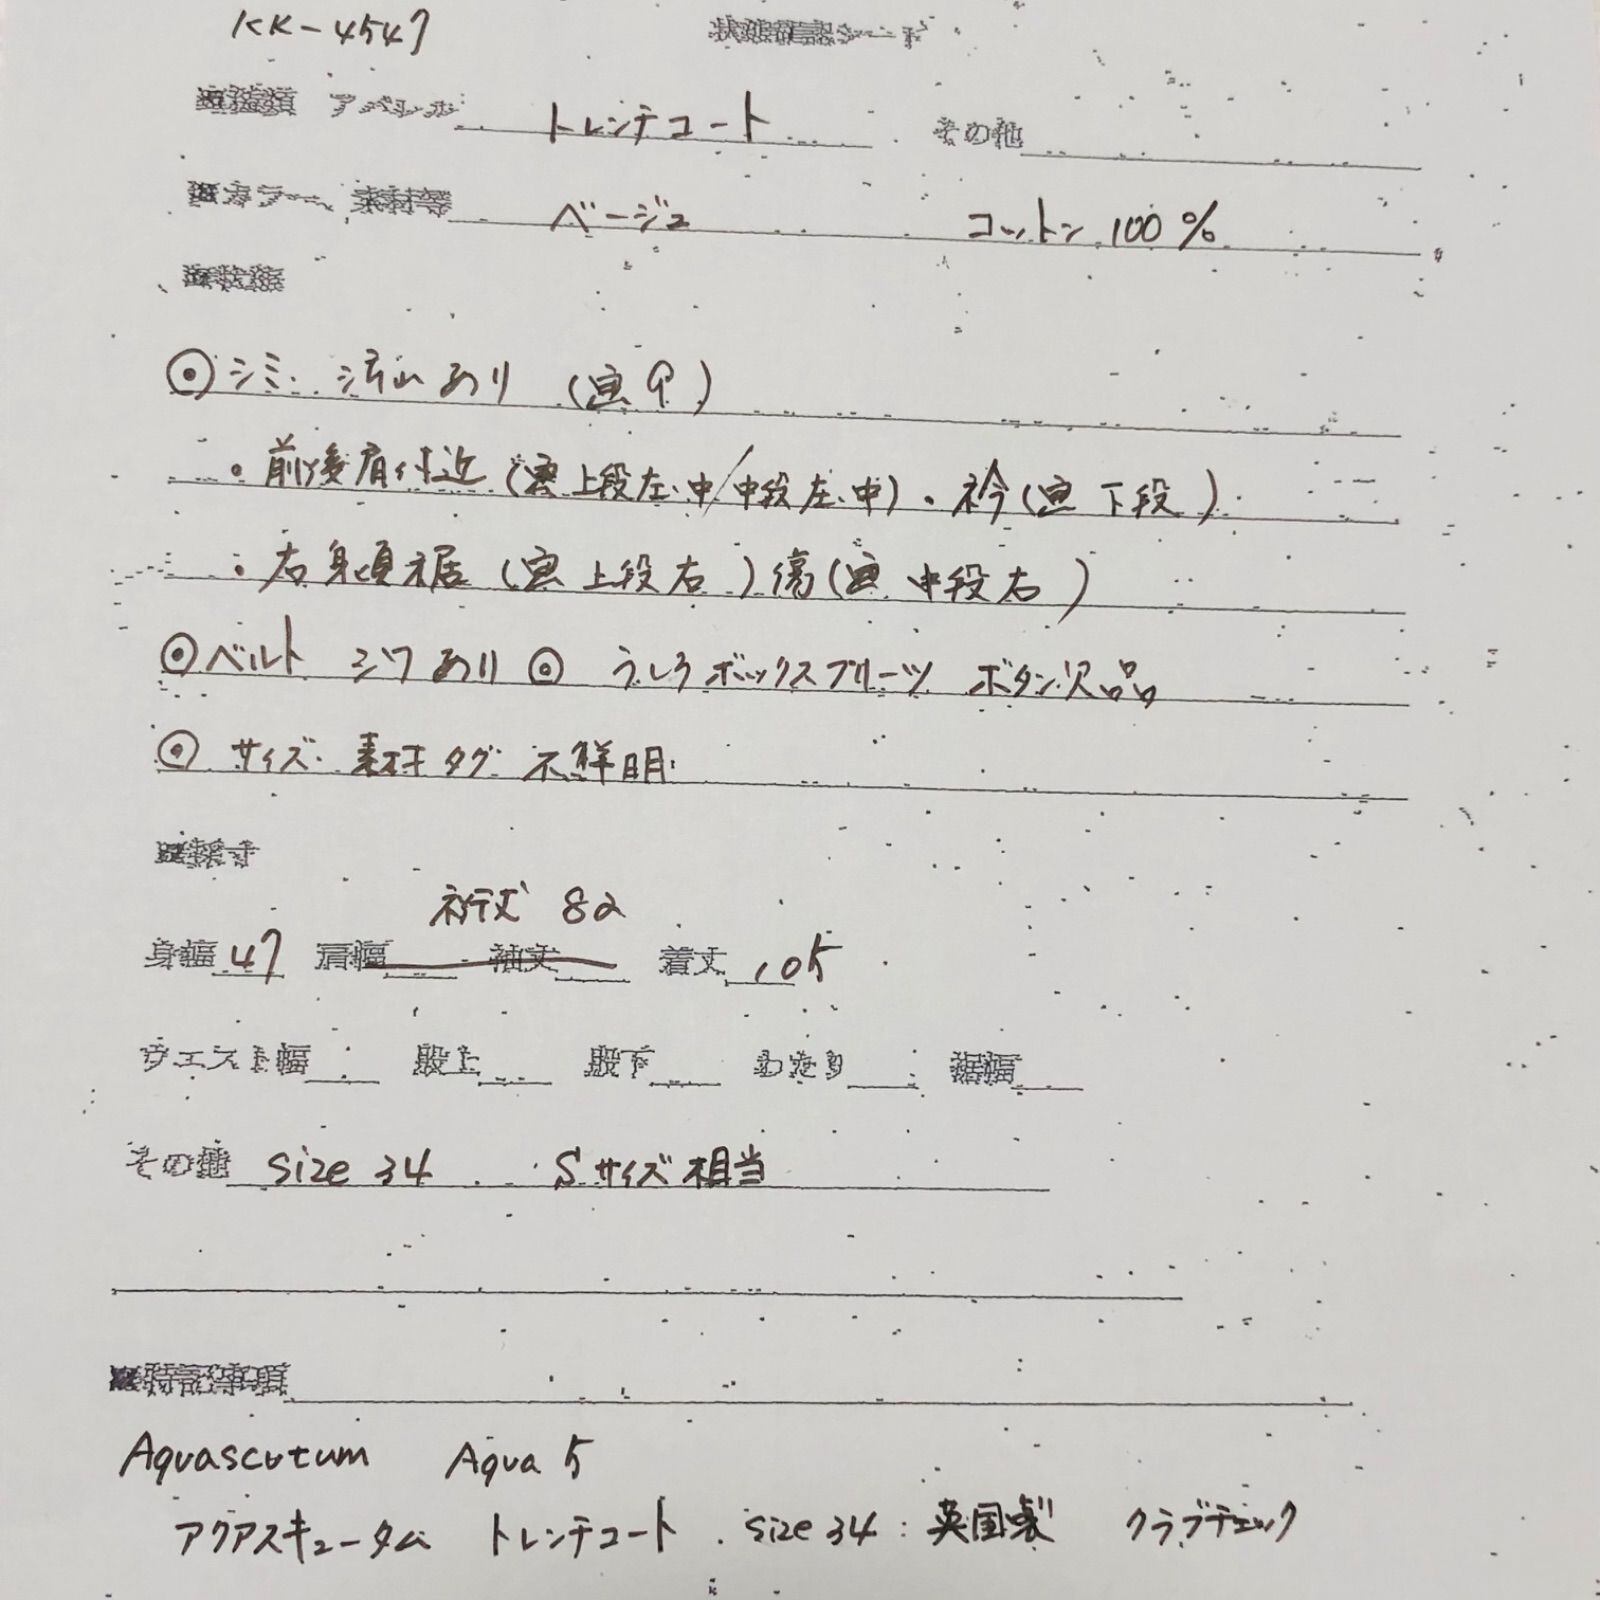 KK-4547 状態確認シート
■種類 アパレル トレンチコート その他
■カラー、素材等 ベージュ コットン100%
■状態
◎シミ、汚れあり (画9)
・前後肩付近(画上段左、中/中段左、中)・衿(画下段)
・右身頃裾(画上段右)傷(画中段右)
◎ベルト シワあり ◎うしろボックスプリーツ ボタン欠品
◎サイズ、素材タグ 不鮮明
■採寸
裄丈 82
身幅 47 肩幅 袖丈 着丈 105
ウエスト幅 股上 股下 わたり 裾幅
その他 size 34 Sサイズ相当
■特記事項
Aquascutum Aqua 5
アクアスキュータム トレンチコート size 34 英国製 クラブチェック